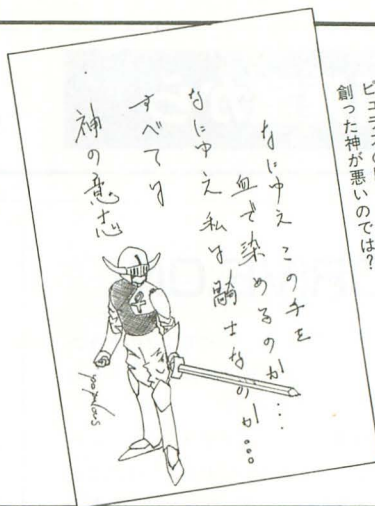 創った神が悪いのでは?
なにゆえ この手を
血で染めるのか…
なにゆえ 私は騎士なのか…
すべては
神の意志